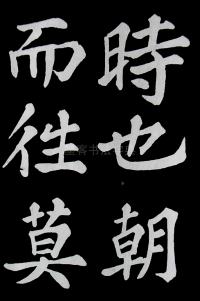 時也朝
而往莫